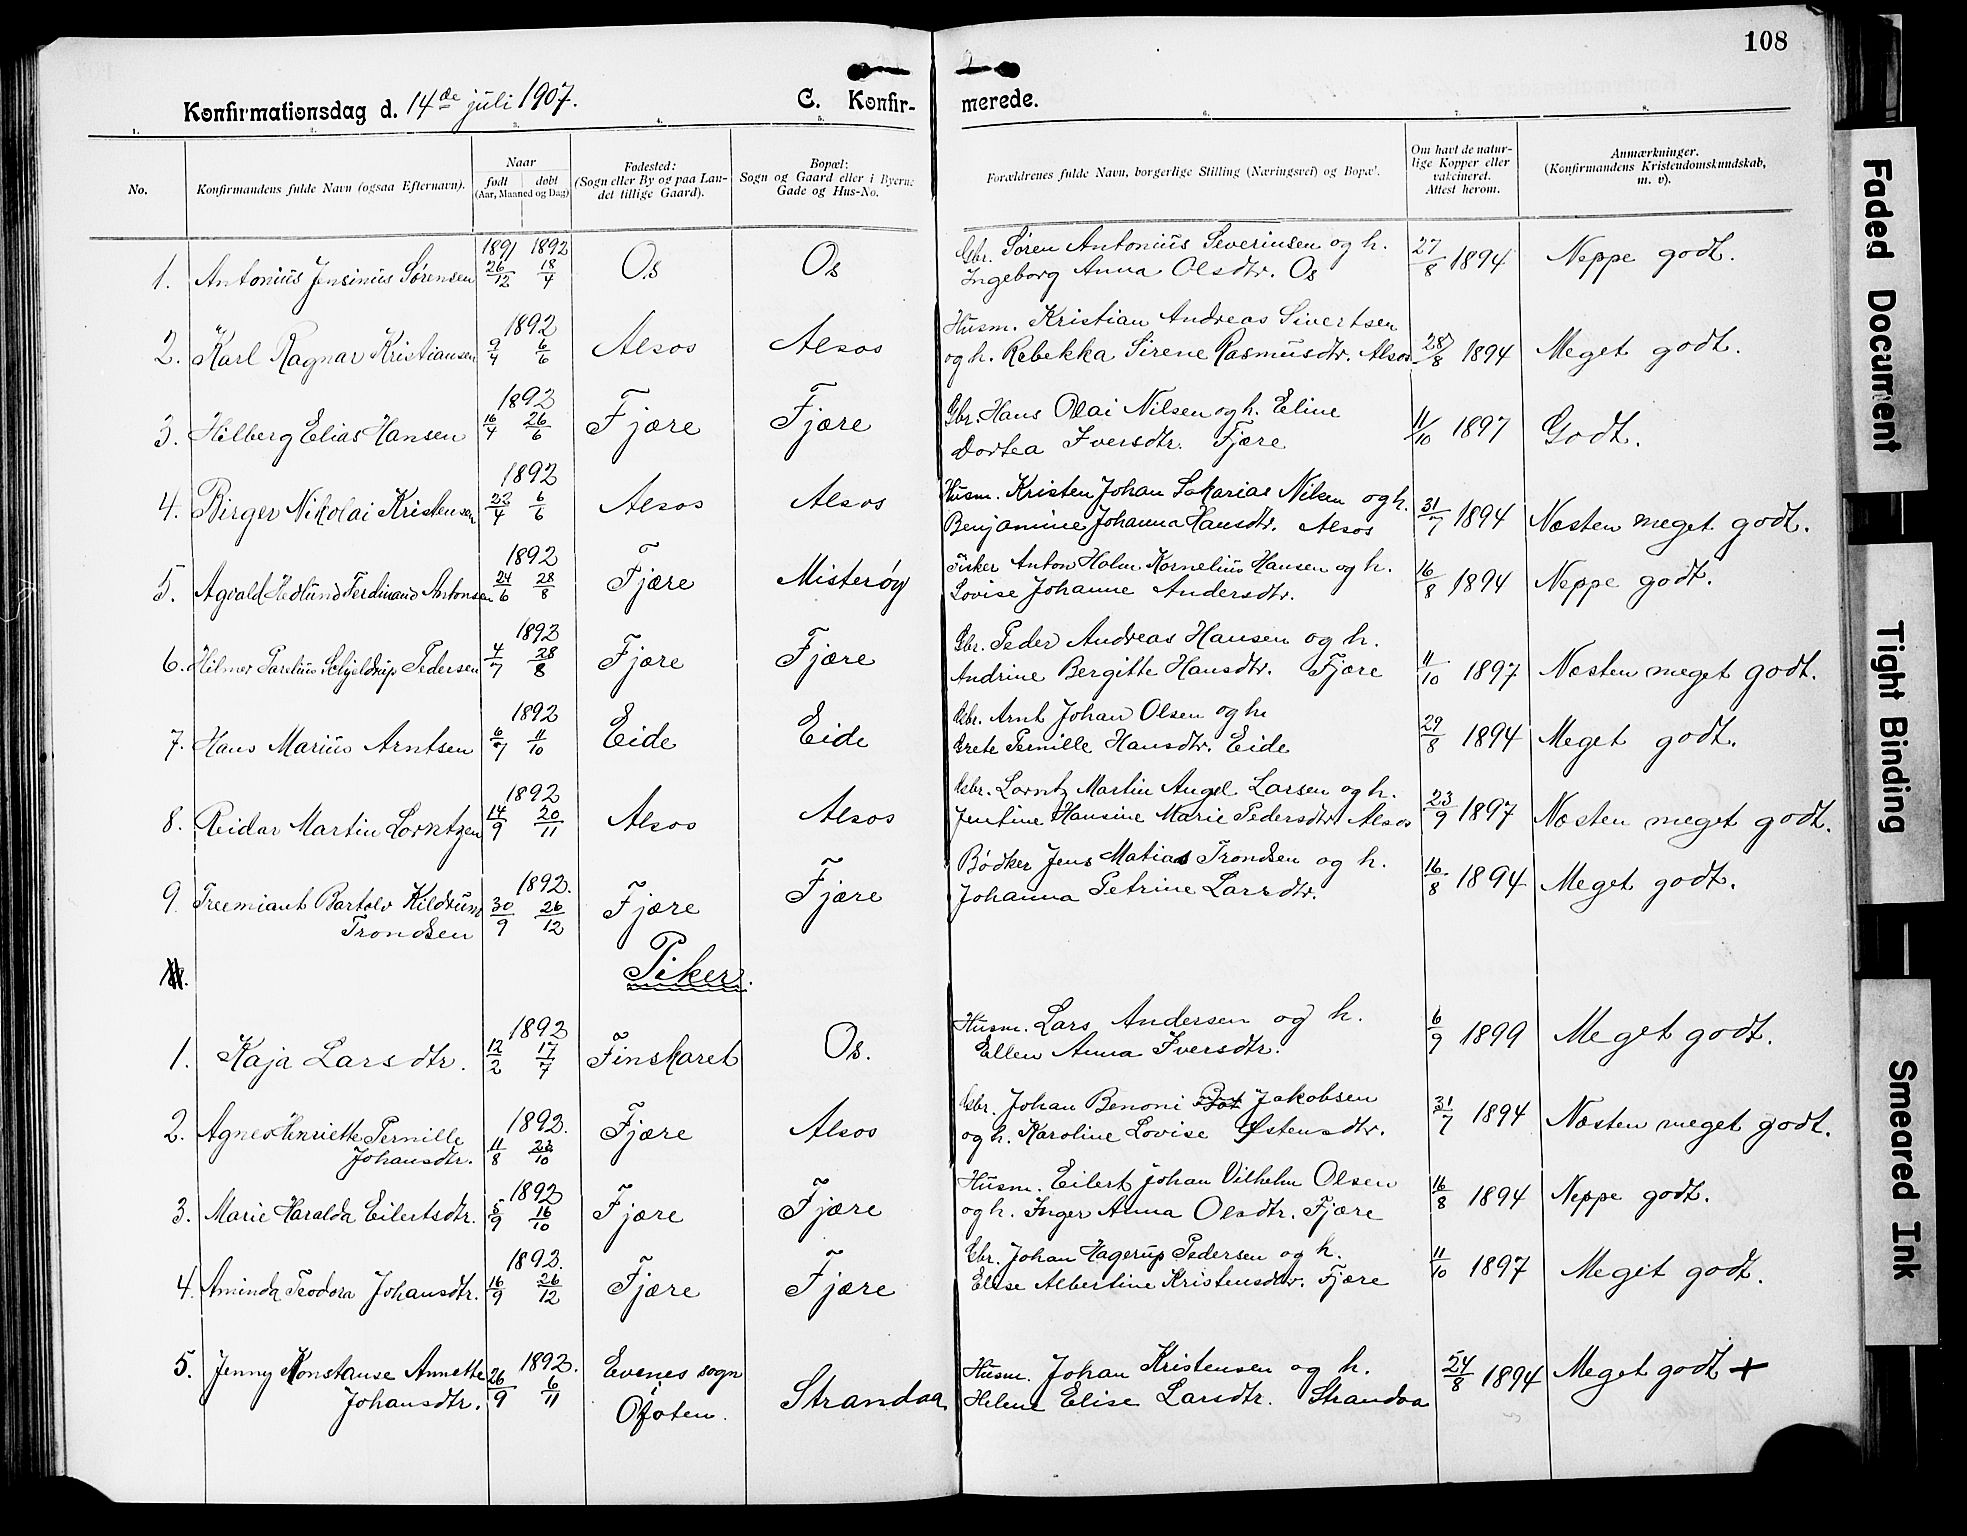 108
Konfirmationsdag d. 14de juli 1907.
C. Konfir-
merede.
1. 2. 3. 4. 5. 6. 7. 8.
No.
Konfirmandens fulde Navn (ogsaa Efternavn).
Naar
født døbt
(Aar, Maaned og Dag)
Fødested:
(Sogn eller By og paa Lan-
det tillige Gaard).
Bopæl:
Sogn og Gaard eller i Byern:
Gade og Hus-No.
Forældrenes fulde Navn, borgerlige Stilling (Næringsvei) og Bopæl.
Om havt de natur-
lige Kopper eller
vakcineret.
Attest herom.
Anmærkninger.
(Konfirmandens Kristendomskundskab,
m. v).
1. Antonius Jensinius Sørensen 1891 26/12 1892 18/4 Os Os Gbr. Søren Antonius Severinsen og h.
Ingeborg Anna Olsdtr. Os 27/8 1894 Neppe godt.
2. Karl Ragnar Kristiansen 1892 9/4 6/6 Alsos Alsos Husm. Kristian Andreas Sivertsen
og h. Rebekka Sirene Rasmusdtr. Alsos 28/8 1894 Meget godt.
3. Hilberg Elias Hansen 1892 16/4 26/6 Fjære Fjære Gbr. Hans Olai Nilsen og h. Eline
Dortea Iversdtr. Fjære 11/10 1897 Godt.
4. Birger Nikolai Kristensen 1892 22/4 6/6 Alsos Alsos Husm. Kristen Johan Sakarias Nilsen og h.
Benjamine Johanna Hansdtr. Alsos 31/7 1894 Næsten meget godt.
5. Agvald Hedlund Ferdinand Antonsen 1892 24/6 28/8 Fjære Misterøy Fisker Anton Holm Kornelius Hansen og h.
Lovise Johanne Andersdtr. 16/8 1894 Neppe godt.
6. Hilmar Parelius Schjeldrup Pedersen 1892 4/7 28/8 Fjære Fjære Gbr. Peder Andreas Hansen og h.
Andrine Bergitte Hansdtr. Fjære 11/10 1897 Næsten meget godt.
7. Hans Marius Arntsen 1892 6/7 11/10 Eide Eide Gbr. Arnt Johan Olsen og h.
Grete Pernille Hansdtr. Eide 29/8 1894 Meget godt.
8. Reidar Martin Lorntzen 1892 14/9 20/11 Alsos Alsos Gbr. Lorntz Martin Angel Larsen og h.
Jentine Hansine Marie Pedersdtr. Alsos 23/9 1897 Næsten meget godt.
9. Treemiant Bartolv Kildrum 1892. 30/9 26/12 Fjære Fjære Bødker Jens Matias Trondsen og h.
Trondsen Johanna Petrine Larsdtr. 16/8 1894 Meget godt.
Piker.
1. Kaja Larsdtr. 1892 12/2 17/7 Finskaret Os. Husm. Lars Andersen og h.
Ellen Anna Iversdtr. 6/9 1899 Meget godt.
2. Agnes Henriette Pernille 1892. 11/8 23/10 Fjære Alsos Gbr. Johan Benoni Jakobsen
Johansdtr. og h. Karoline Lovise Østensdtr. 31/7 1894 Næsten meget godt.
3. Marie Haralda Eilertsdtr. 1892 5/9 16/10 Fjære Fjære Husm. Eilert Johan Vilhelm Olsen
og h. Inger Anna Olsdtr. Fjære 16/8 1894 Neppe godt.
4. Aminda Teodora Johansdtr. 1892. 16/9 26/12 Fjære Fjære Gbr. Johan Hagerup Pedersen og h.
Elise Albertine Kristensdtr. Fjære 11/10 1897 Meget godt.
5. Jenny Konstanse Annette 1892. 26/9 6/11 Evenes sogn i Strandaa Husm. Johan Kristensen og h.
Johansdtr. Ofoten. Helene Elise Larsdtr. Strandaa 24/8 1894 Meget godt +
Faded Document
Tight Binding
Smeared Ink